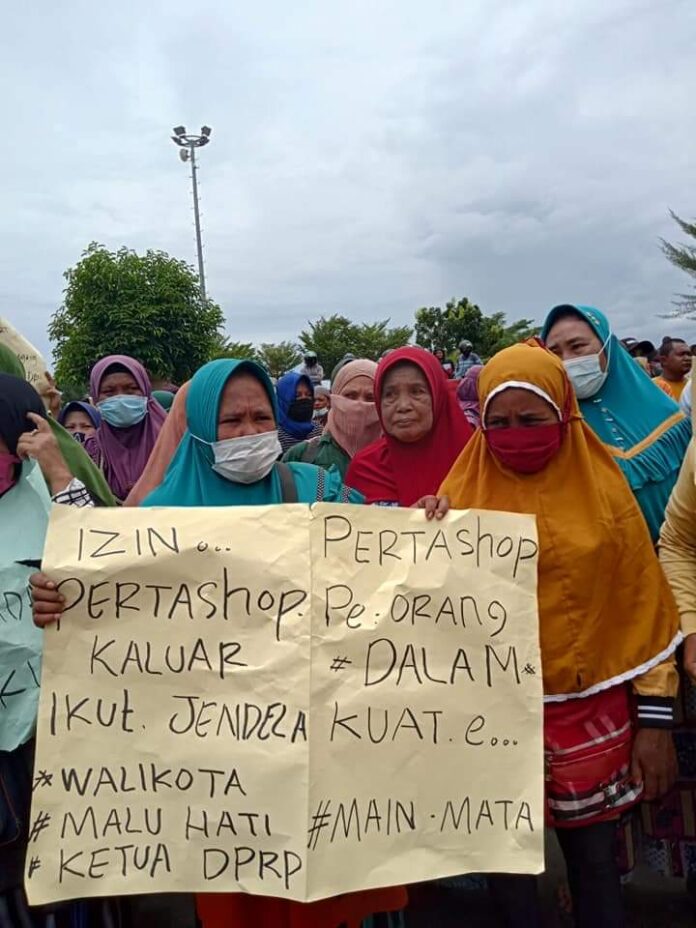 IZIN...
PERTASHOP.
KALUAR
IKUT. JENDELA
*WALIKOTA
#MALU HATI
#KETUA DPRP
PERTASHOP
PE.ORANG
#DALAM*
KUAT.e...
#MAIN.MATA